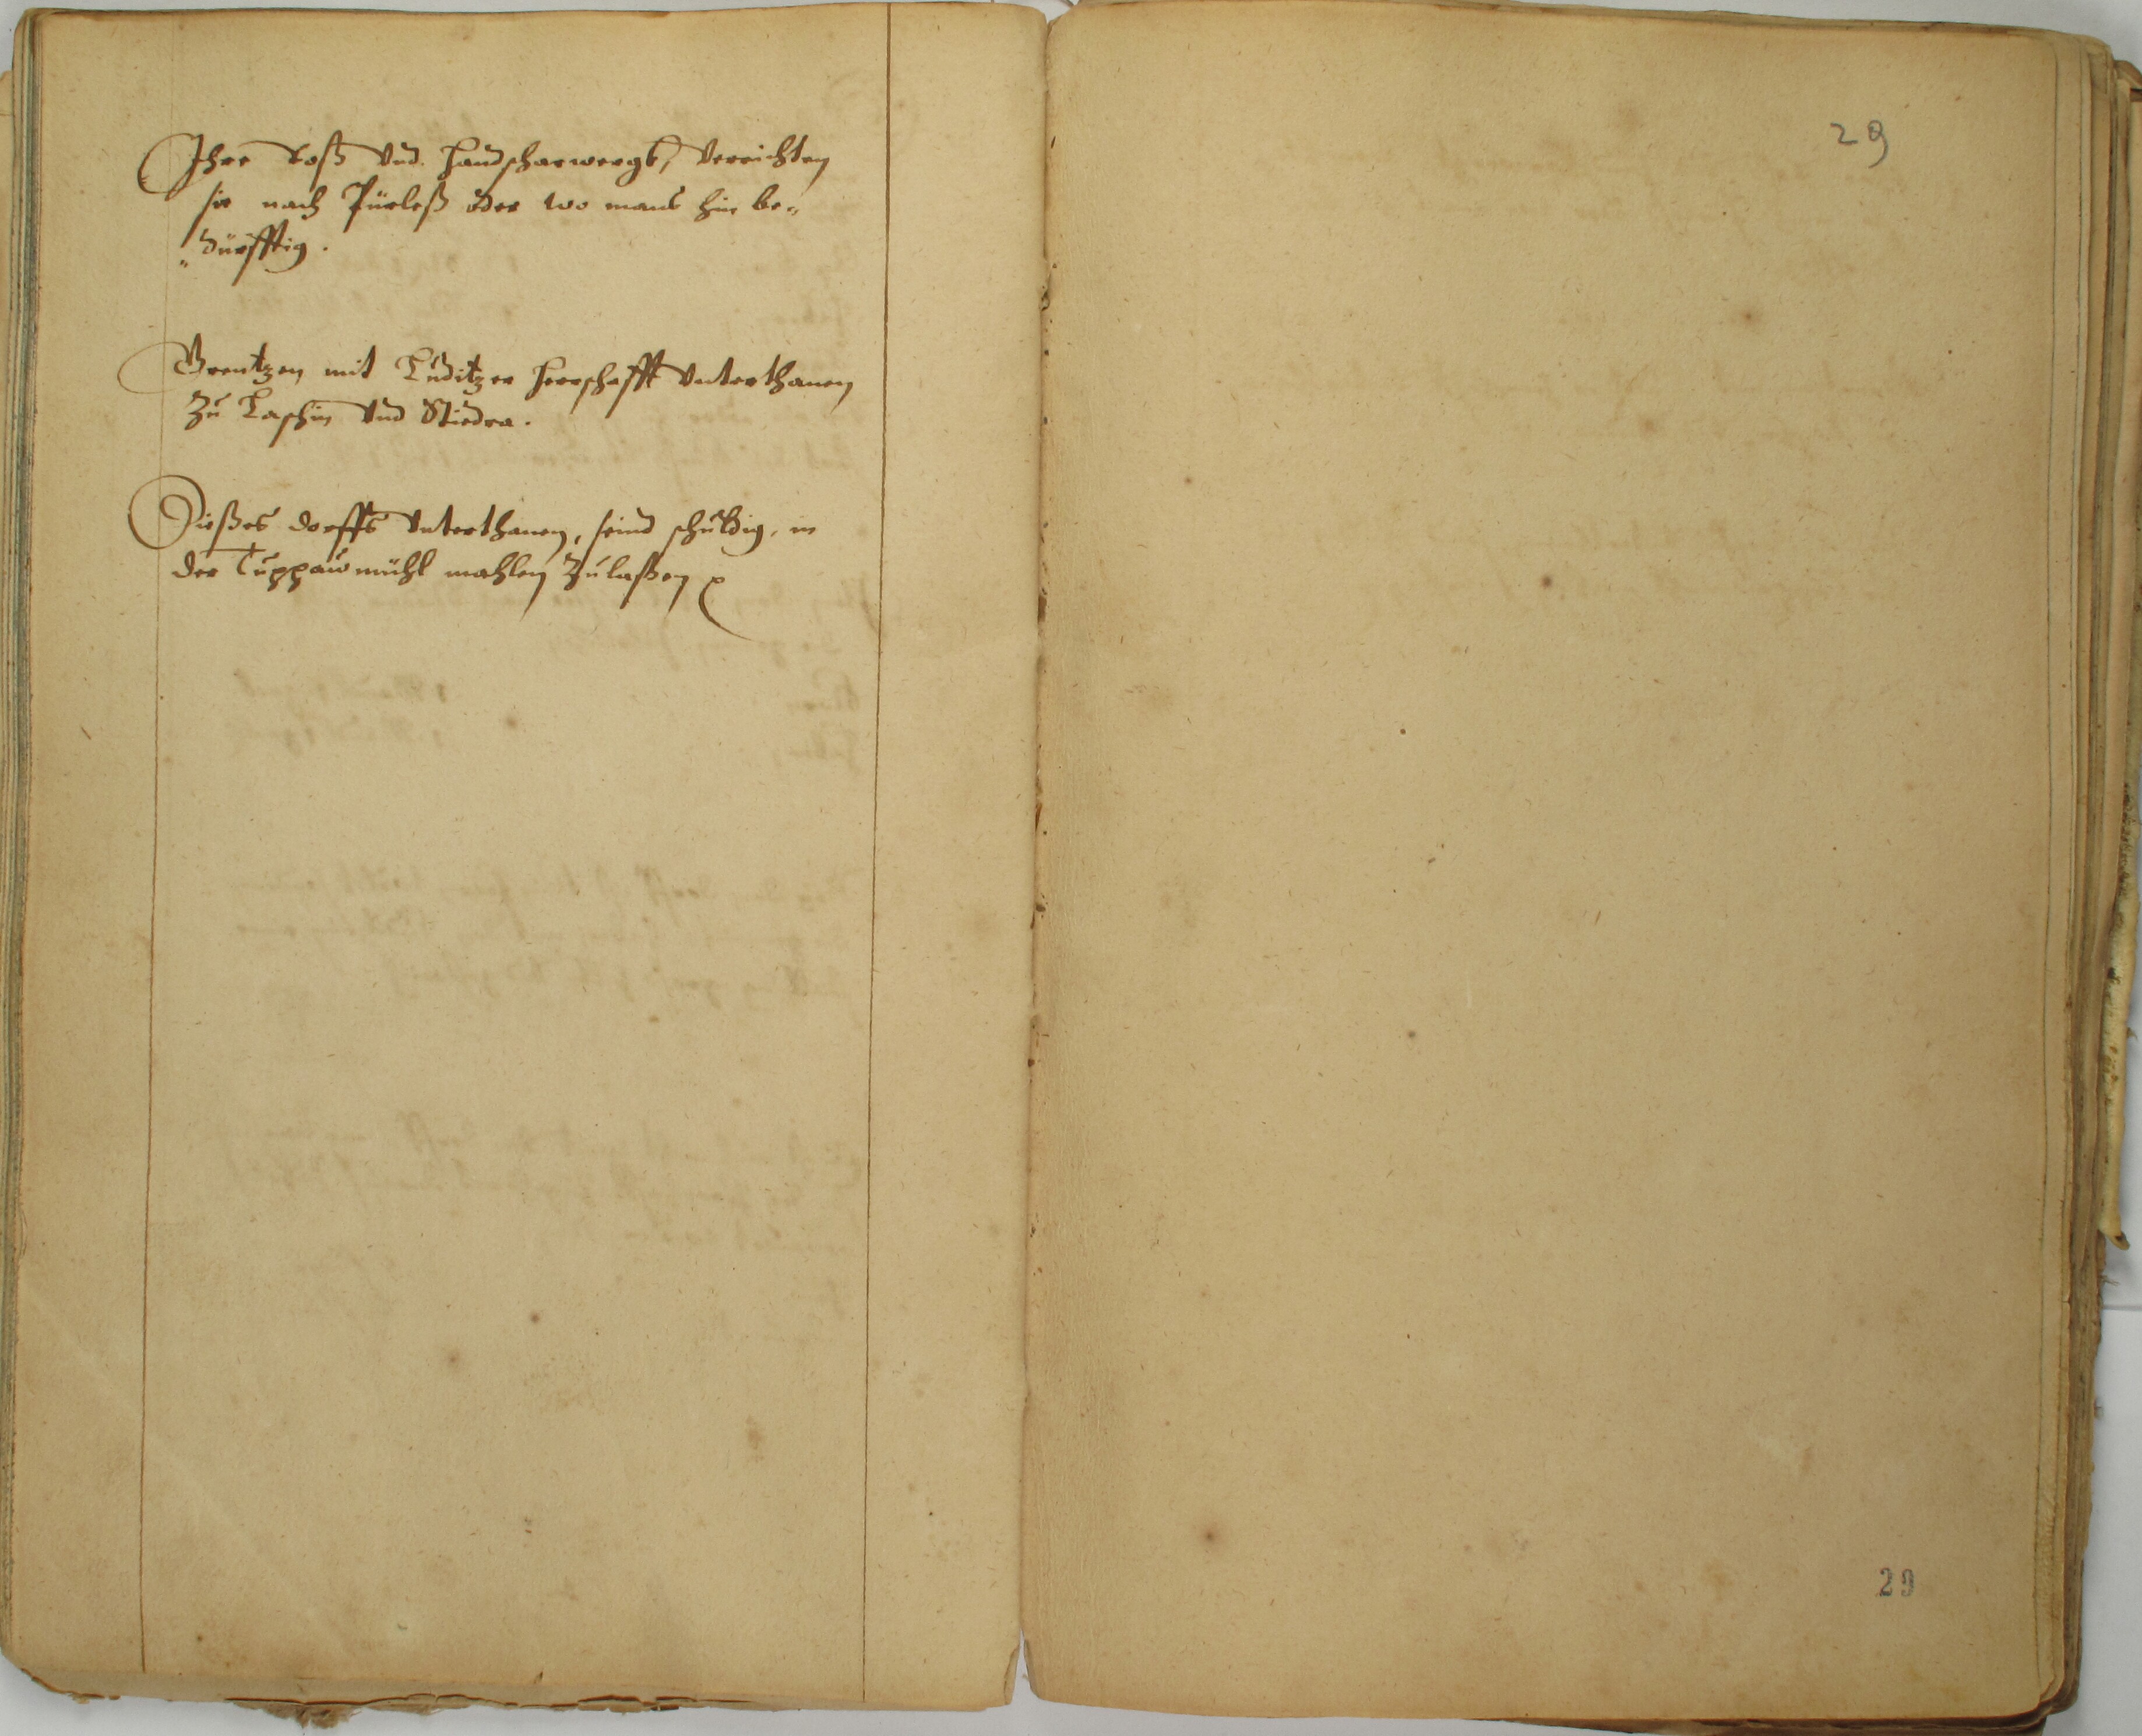 Ihre Roß vnd Handscharwergkh, verrichten
sie nach Pürleß oder wo mans hin be„
„dürfftig.
Grentzen mit Luditzer Herrschafft Vnterthanen
Zu Laschin vnd Stiedra.
Dießes dorffs Vnterthanen, seind schuldig, in
der Tuppawmühl mahlen Zulaßen
29
29